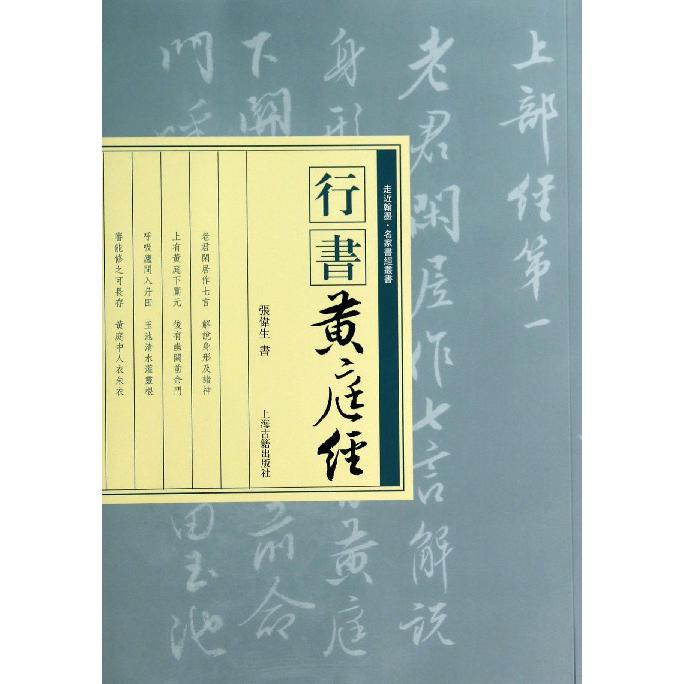 上部經第一
老君閑居作七言解說
身形
黃庭
下關
前命
門呼
田玉池
走近翰墨·名家書經叢書
行書
黃庭經
張偉生 書
上海古籍出版社
老君閑居作七言 解說身形及諸神
上有黃庭下關元 後有幽闕前命門
呼吸廬間入丹田 玉池清水灌靈根
審能修之可長存 黃庭中人衣朱衣